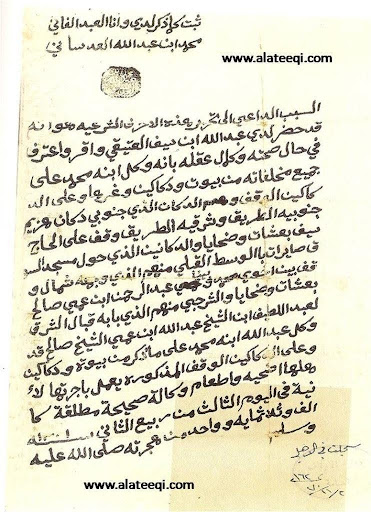 ثبت كما ذكر لدي وانا العبد الفاني
محمد ابن عبدالله العدساني
www.alateeqi.com
السبب الداعي الى تحرير هذه الاحرف الشرعيه هو انه
قد حضر لدي عبدالله ابن سيف العتيقي واقر واعترف
في حال صحته وكمال عقله بانه وكل ابنه محمد على
جميع مخلفاته من بيوت ودكاكين وغيرها وعلى الد
كاكين الوقف وهم الدكان الذي جنوبي دكان
جنوبيه الطريق وشرقيه الطريق وقف على الحاج
سيف بعشيات وضحايا والدكانين الذي حول مسجد السو
ق صايرات بالوسط القبلي منهم الذي وبابه شمال و
قف بيت عبدالرحمن ابن عمي صالح
بعشيات وضحايا والشرقي منهم الذي بابه قبال الشرق
لعبداللطيف ابن الشيخ عبدالله ابن عمي الشيخ صالح قد
وكل عبدالله ابنه محمد على ما ذكر من بيوة ودكاكين
وعلى الدكاكين الوقف المذكورة يعمل باجرتها لا
هلها اضحيه واطعام وكالة صحيحة مطلقة كا
نية في اليوم الثالث من ربيع الثاني سنة
الف وثلاثمايه وواحد من هجرته صلى الله عليه
وسلم
www.alateeqi.com